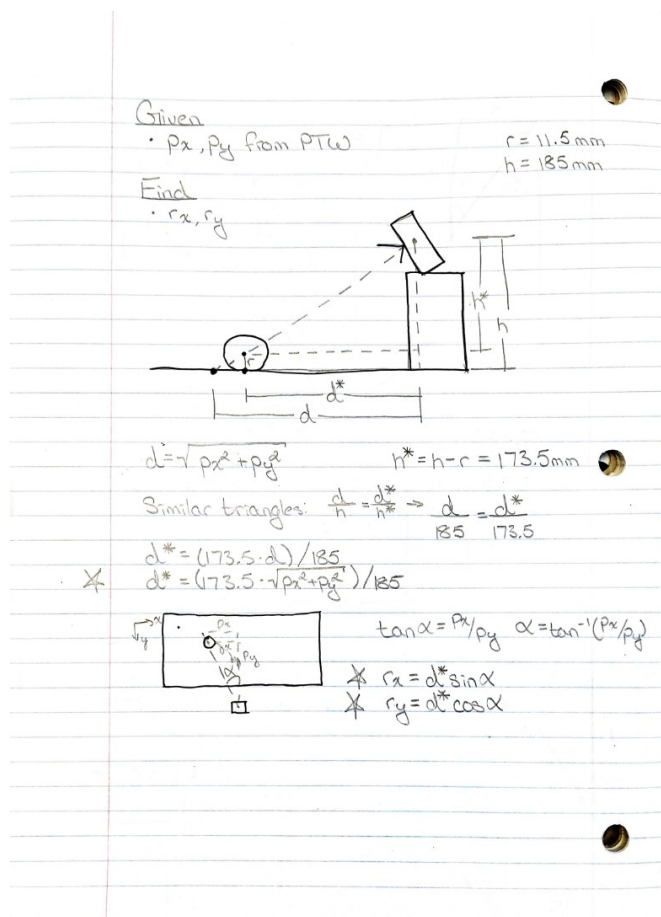 Given
· px, py from PTW
r = 11.5mm
h = 185mm
Find
· rx, ry
h*
h
r
d*
d
d = √px² + py²
h* = h - r = 173.5mm
Similar triangles: d/h = d*/h* → d/185 = d*/173.5
d* = (173.5 · d) / 185
d* = (173.5 · √px² + py²) / 185
x
y
px
py
α
tanα = px/py α = tan⁻¹(px/py)
rx = d* sinα
ry = d* cosα